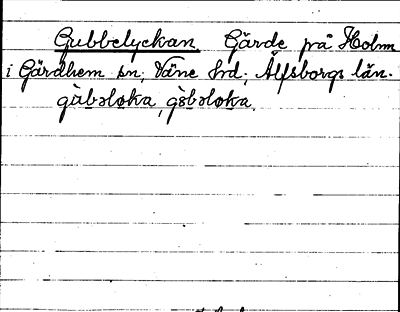 Gubbelyckan Gärde på Holm
i Gärdhem sn, Väne hrd, Älfsborgs län.
gàbəloka, gòbəloka.